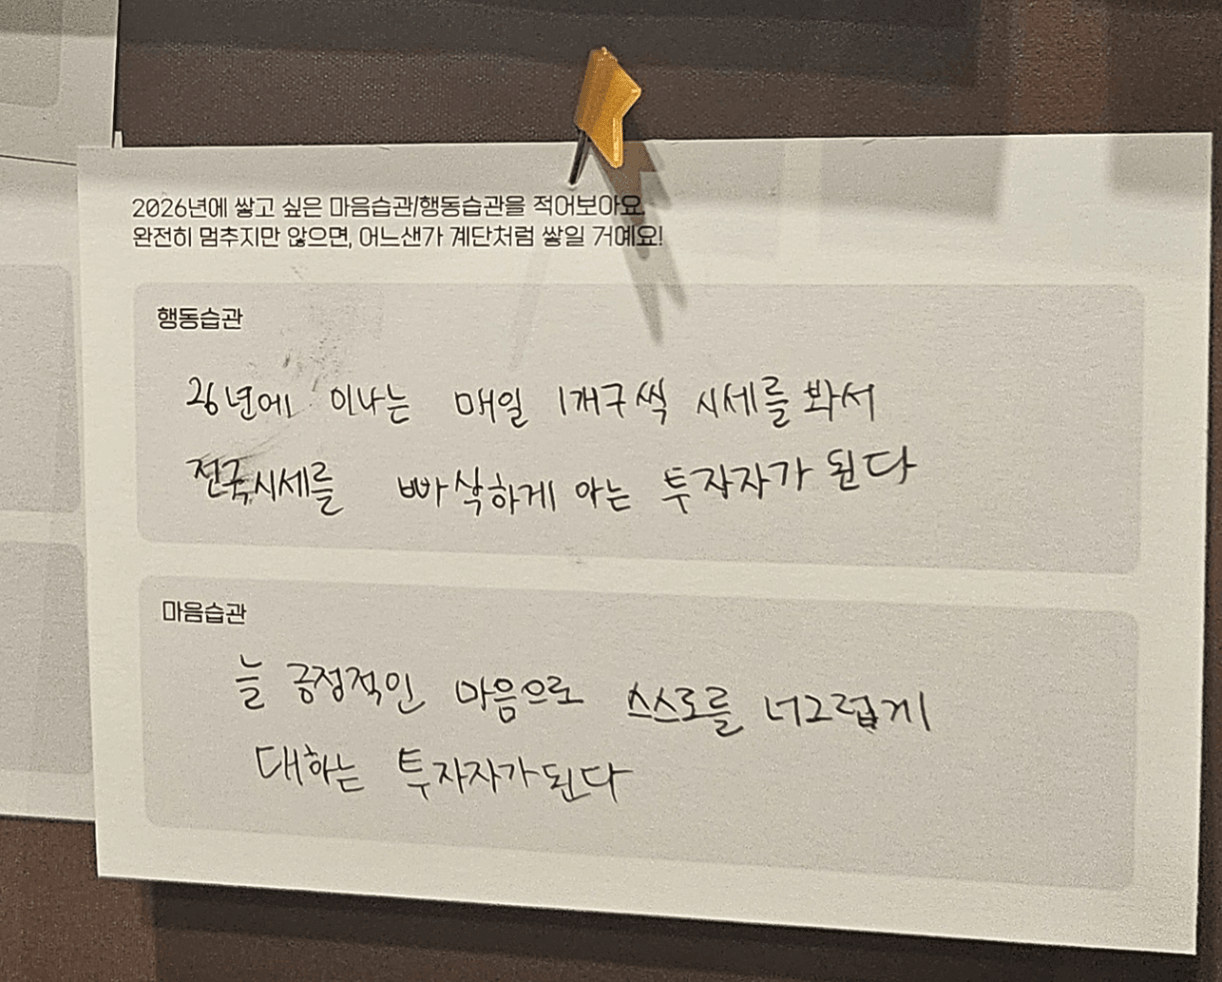 2026년에 쌓고 싶은 마음습관/행동습관을 적어보아요.
완전히 멈추지만 않으면, 어느샌가 계단처럼 쌓일 거예요!
행동습관
26년에 이나는 매일 1개구씩 시세를 봐서
전국시세를 빠삭하게 아는 투자자가 된다
마음습관
늘 긍정적인 마음으로 스스로를 너그럽게
대하는 투자자가 된다